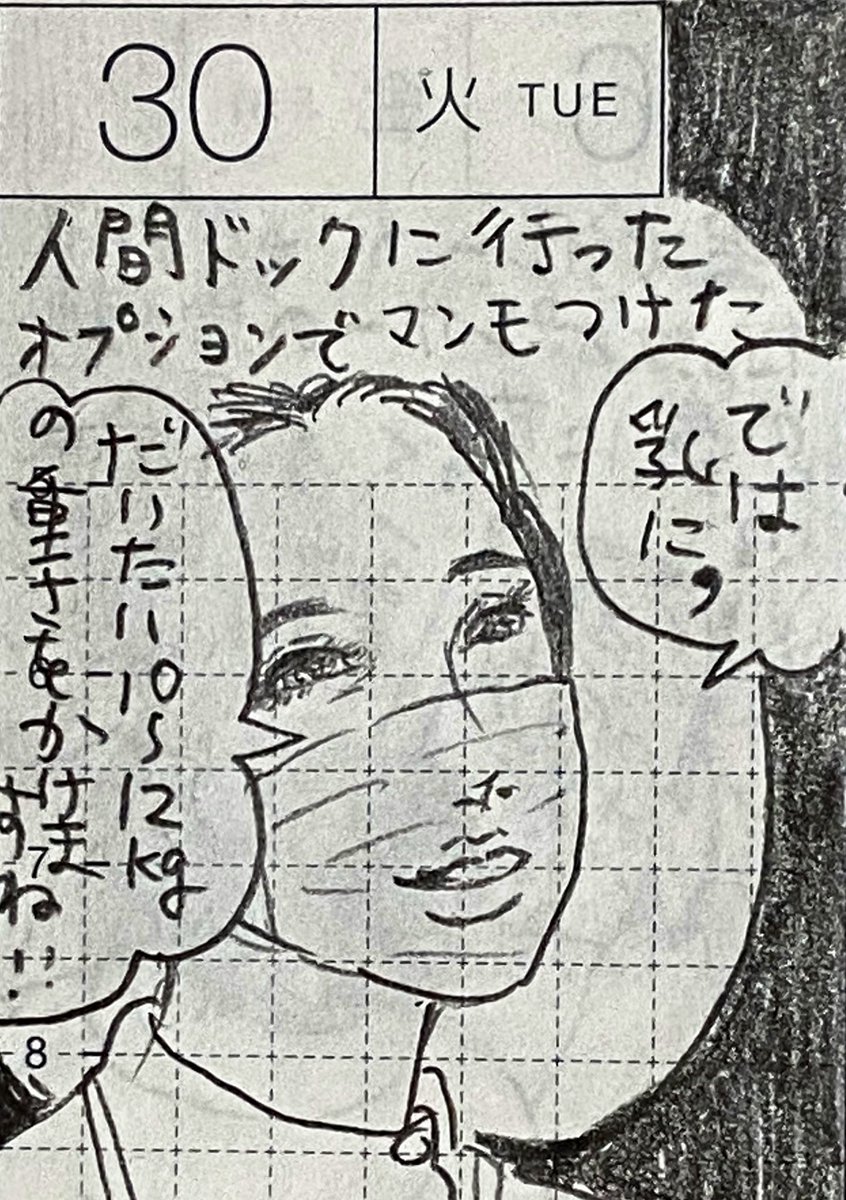 30
火 TUE
人間ドックに行った
オプションでマンモつけた
では
乳に,
だいたい10〜12kg
の重さをかけま
すね!!
7
8